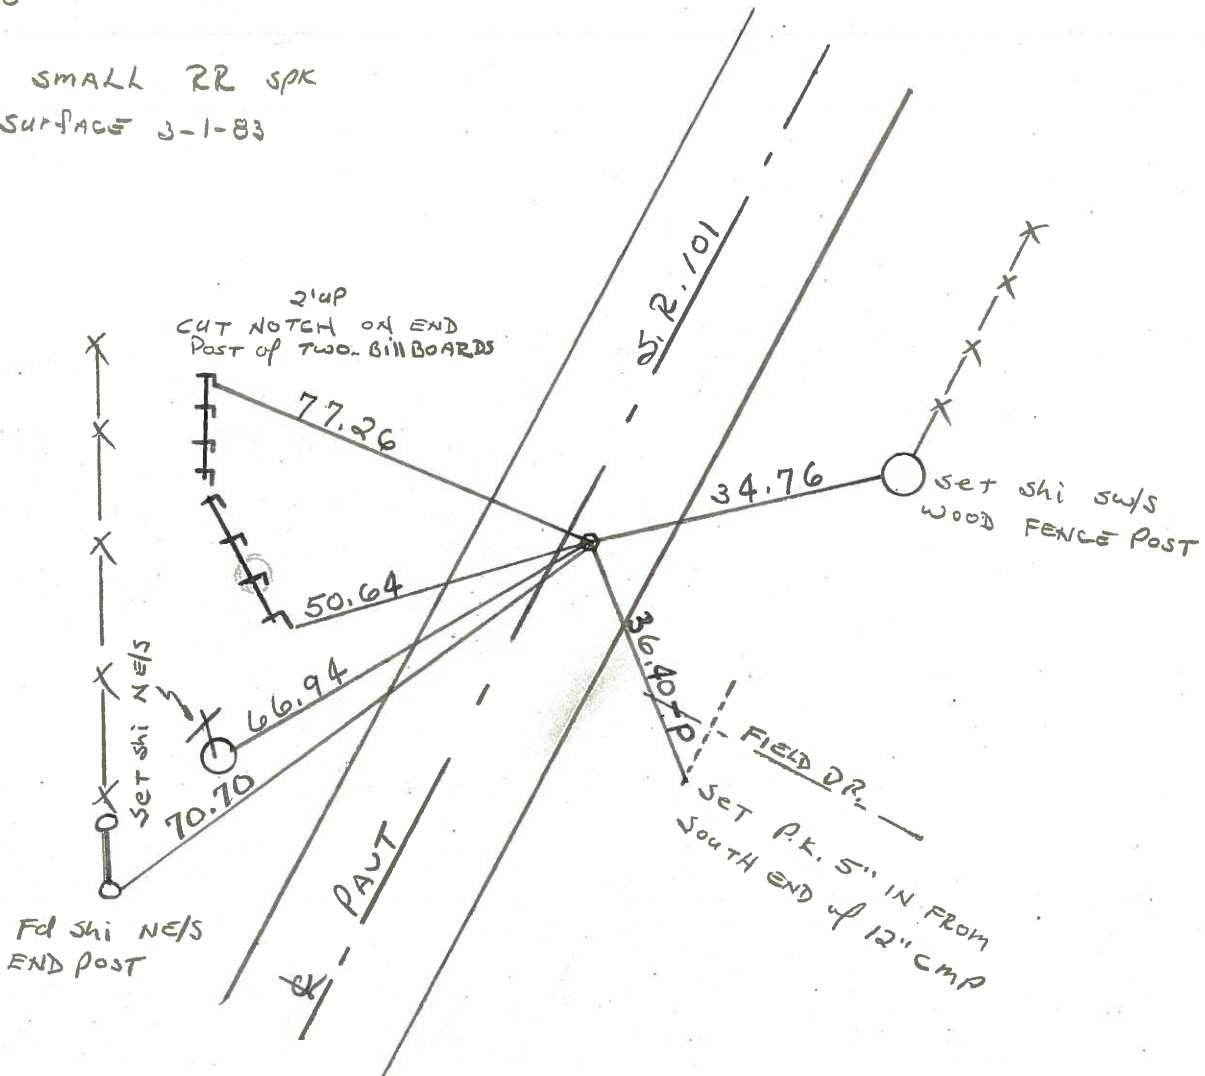 SMALL RR SPK
SURFACE 3-1-83
S.R. 101
2' UP
CUT NOTCH ON END
POST of TWO- BillBOARDS
77.26
34.76
Set shi SW/S
WOOD FENCE POST
50.64
36.40-P
66.94
Set shi NE/S
70.70
FIELD DR.
SET P.K. 5" IN FROM
SOUTH END of 12" CMP
PAVT
Fd shi NE/S
END POST